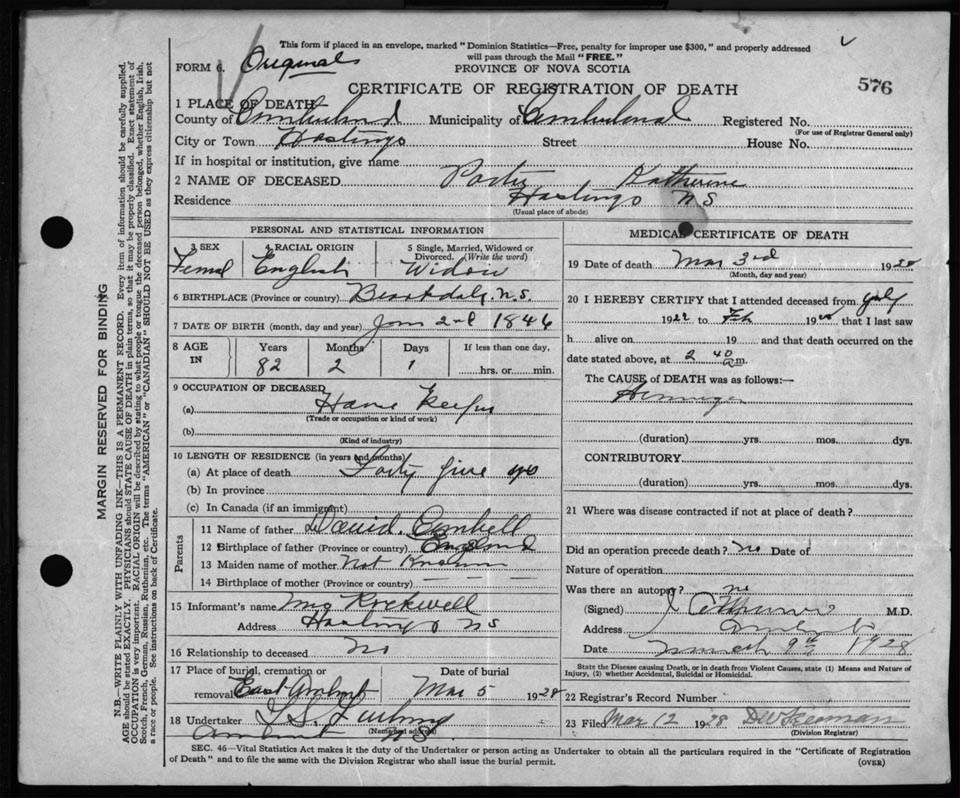 This form if placed in an envelope, marked "Dominion Statistics—Free, penalty for improper use $300," and properly addressed
will pass through the Mail "FREE."
FORM 6. Original
PROVINCE OF NOVA SCOTIA
CERTIFICATE OF REGISTRATION OF DEATH
576
1 PLACE OF DEATH
County of Cumberland Municipality of Cumberland Registered No.
(For use of Registrar General only)
City or Town Hastings Street House No.
If in hospital or institution, give name
2 NAME OF DECEASED Katherine
Residence Hastings N S
(Usual place of abode)
PERSONAL AND STATISTICAL INFORMATION
3 SEX 4 RACIAL ORIGIN 5 Single, Married, Widowed or Divorced. (Write the word)
Female English Widow
6 BIRTHPLACE (Province or country) N.S.
7 DATE OF BIRTH (month, day and year) Jan 2nd 1846
8 AGE IN Years Months Days If less than one day,
82 2 1 hrs. or min.
9 OCCUPATION OF DECEASED
(a) House Keeper
(Trade or occupation or kind of work)
(b)
(Kind of industry)
10 LENGTH OF RESIDENCE (in years and months)
(a) At place of death Forty five yrs
(b) In province
(c) In Canada (if an immigrant)
Parents
11 Name of father David
12 Birthplace of father (Province or country) England
13 Maiden name of mother Not Known
14 Birthplace of mother (Province or country) — — —
15 Informant's name Mrs Rockwell
Address Hastings N S
16 Relationship to deceased No
17 Place of burial, cremation or removal Date of burial
East Amherst Mar 5 1928
18 Undertaker
Amherst N S
(Name and address)
MEDICAL CERTIFICATE OF DEATH
19 Date of death Mar 3rd 1928
(Month, day and year)
20 I HEREBY CERTIFY that I attended deceased from July
19 to Feb 19 that I last saw
h alive on 19 and that death occurred on the
date stated above, at 2 40 a.m.
The CAUSE of DEATH was as follows:—
(duration) yrs. mos. dys.
CONTRIBUTORY
(duration) yrs. mos. dys.
21 Where was disease contracted if not at place of death?
Did an operation precede death? no Date of
Nature of operation
Was there an autopsy? no
(Signed) M.D.
Address Amherst
Date March 9th 1928
State the Disease causing Death, or in death from Violent Causes, state (1) Means and Nature of
Injury, (2) whether Accidental, Suicidal or Homicidal.
22 Registrar's Record Number
23 Filed Mar 12 1928
(Division Registrar)
SEC. 46—Vital Statistics Act makes it the duty of the Undertaker or person acting as Undertaker to obtain all the particulars required in the "Certificate of Registration
of Death" and to file the same with the Division Registrar who shall issue the burial permit.
(OVER)
MARGIN RESERVED FOR BINDING
N.B.—WRITE PLAINLY WITH UNFADING INK—THIS IS A PERMANENT RECORD. Every item of information should be carefully supplied.
AGE should be stated EXACTLY. PHYSICIANS should STATE CAUSE OF DEATH in plain terms, so that it may be properly classified. Exact statement of
OCCUPATION is very important. RACIAL ORIGIN will be described by stating to what people or tongue the deceased person belonged, whether English, Irish,
Scotch, French, German, Russian, Ruthenian, etc. The terms "AMERICAN" or "CANADIAN" SHOULD NOT BE USED as they express citizenship but not
a race or people. See instructions on back of Certificate.